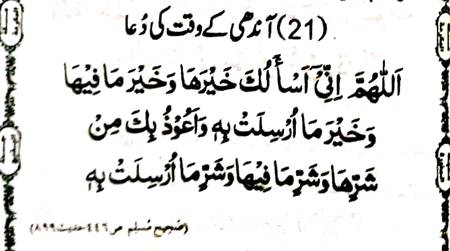 (21) آندھی کے وقت کی دُعا
اَللّٰهُمَّ اِنِّيْٓ اَسْأَلُكَ خَيْرَهَا وَخَيْرَ مَا فِيْهَا
وَخَيْرَ مَا اُرْسِلَتْ بِهٖ وَاَعُوْذُ بِكَ مِنْ
شَرِّهَا وَشَرِّ مَا فِيْهَا وَشَرِّ مَا اُرْسِلَتْ بِهٖ
(صَحِیح مُسلِم ص ٤٤٦ حدیث ٨٩٩)